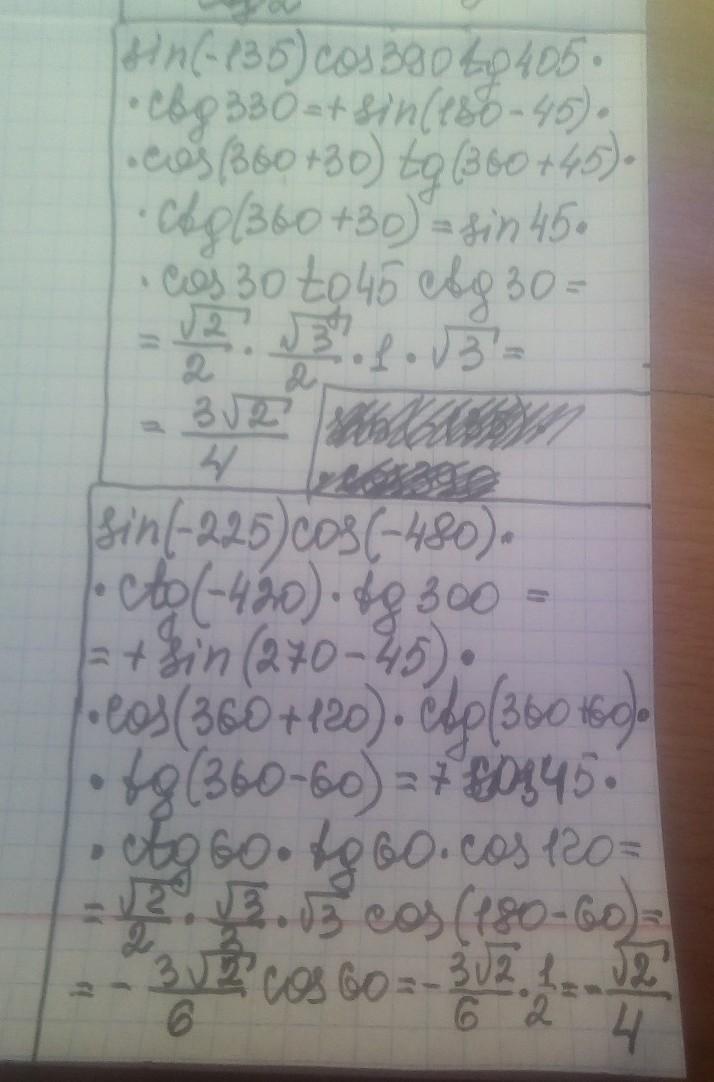 sin(-135)cos390tg405·
·ctg330=+sin(180-45)·
·cos(360+30) tg(360+45)·
·ctg(360+30)=sin45·
·cos30 tg45 ctg30=
= √2/2 · √3/2 · 1 · √3 =
= 3√2/4
sin(-225)cos(-480)·
·ctg(-420)·tg300 =
=+sin(270-45)·
·cos(360+120)·ctg(360+60)·
·tg(360-60)=+cos45·
·ctg60·tg60·cos120=
= √2/2 · √3/3 · √3 cos(180-60)=
= - 3√2/6 cos60 = - 3√2/6 · 1/2 = - √2/4